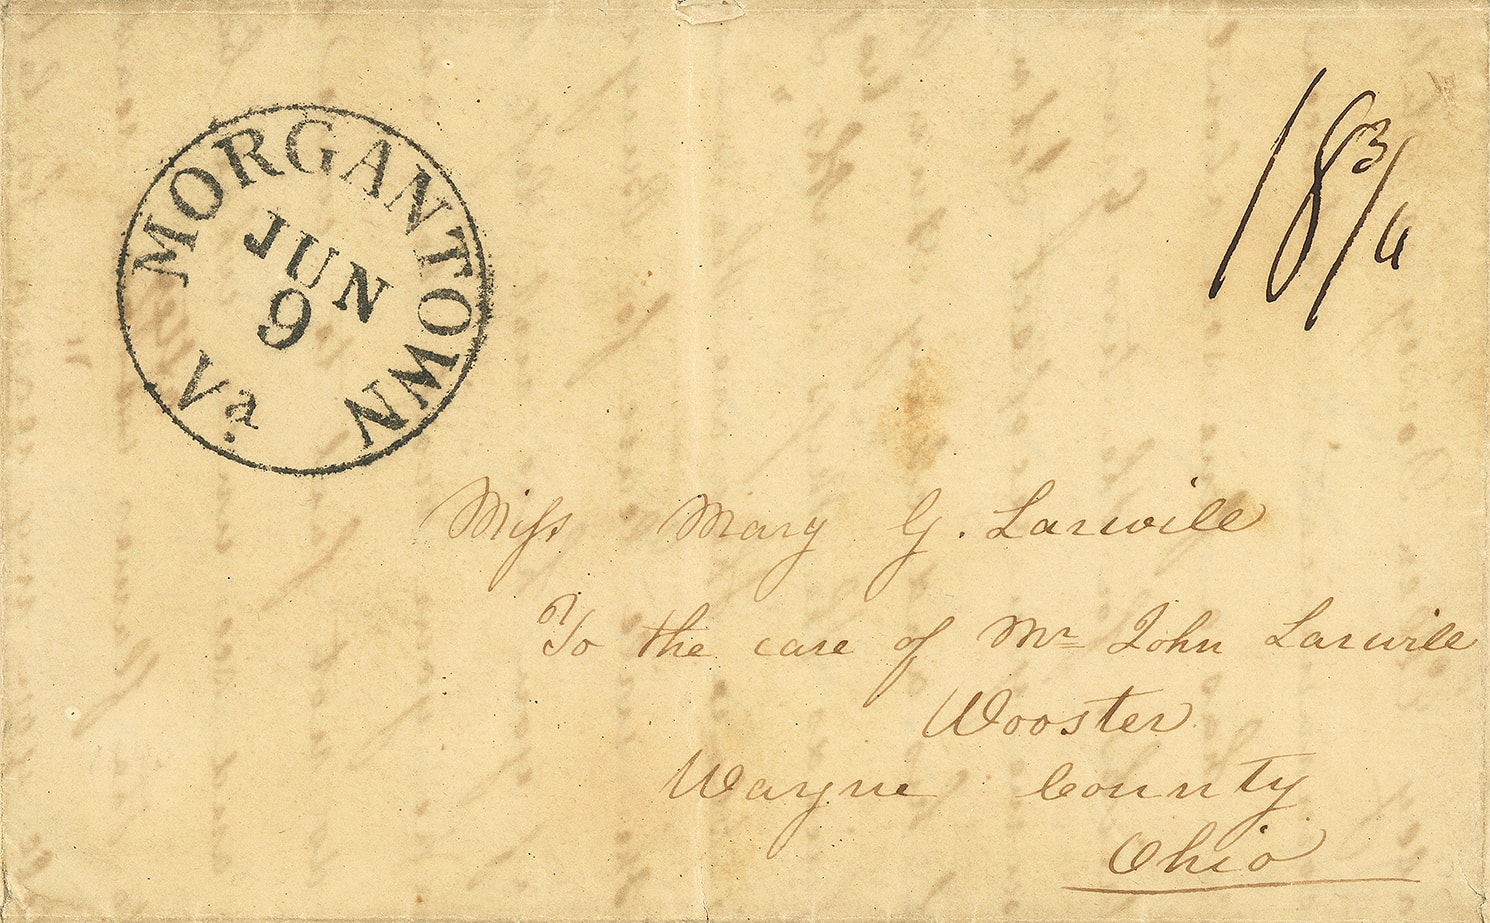 MORGANTOWN
JUN
9
Va
18 3/4
Miss Mary G. Larwill
To the care of Mr John Larwill
Wooster
Wayne County
Ohio